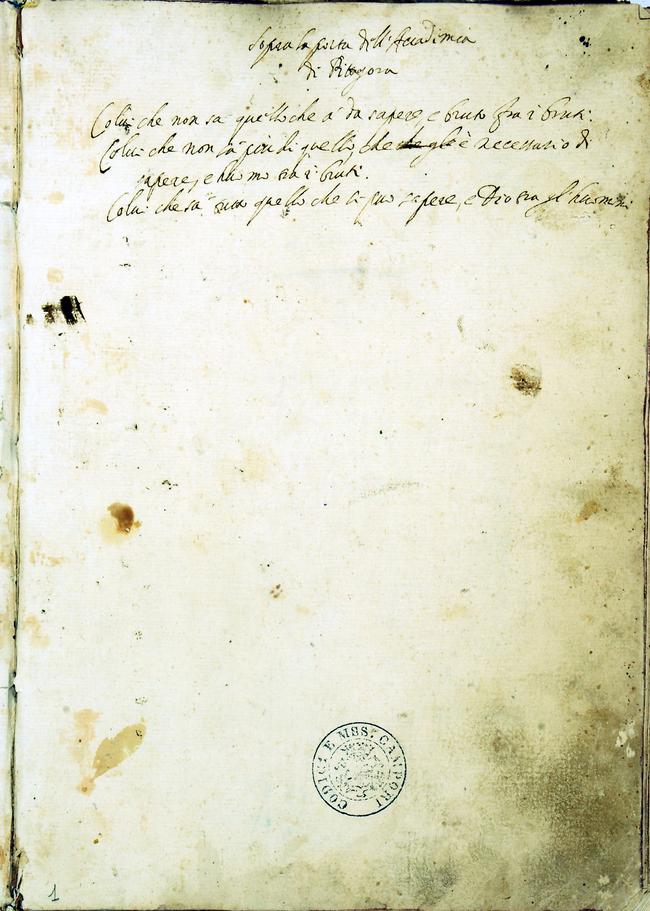 Sopra la porta dell'Accademia
di Pitagora
Colui che non sa quello che a' da sapere, e bruto fra i bruti.
Colui che non sa più di quello che è necessario di
sapere, e huomo tra i bruti.
Colui che sa tutto quello che si può sapere, e Dio tra gl'huomini
CODICI E MSSᵗⁱ CAMPORI
1